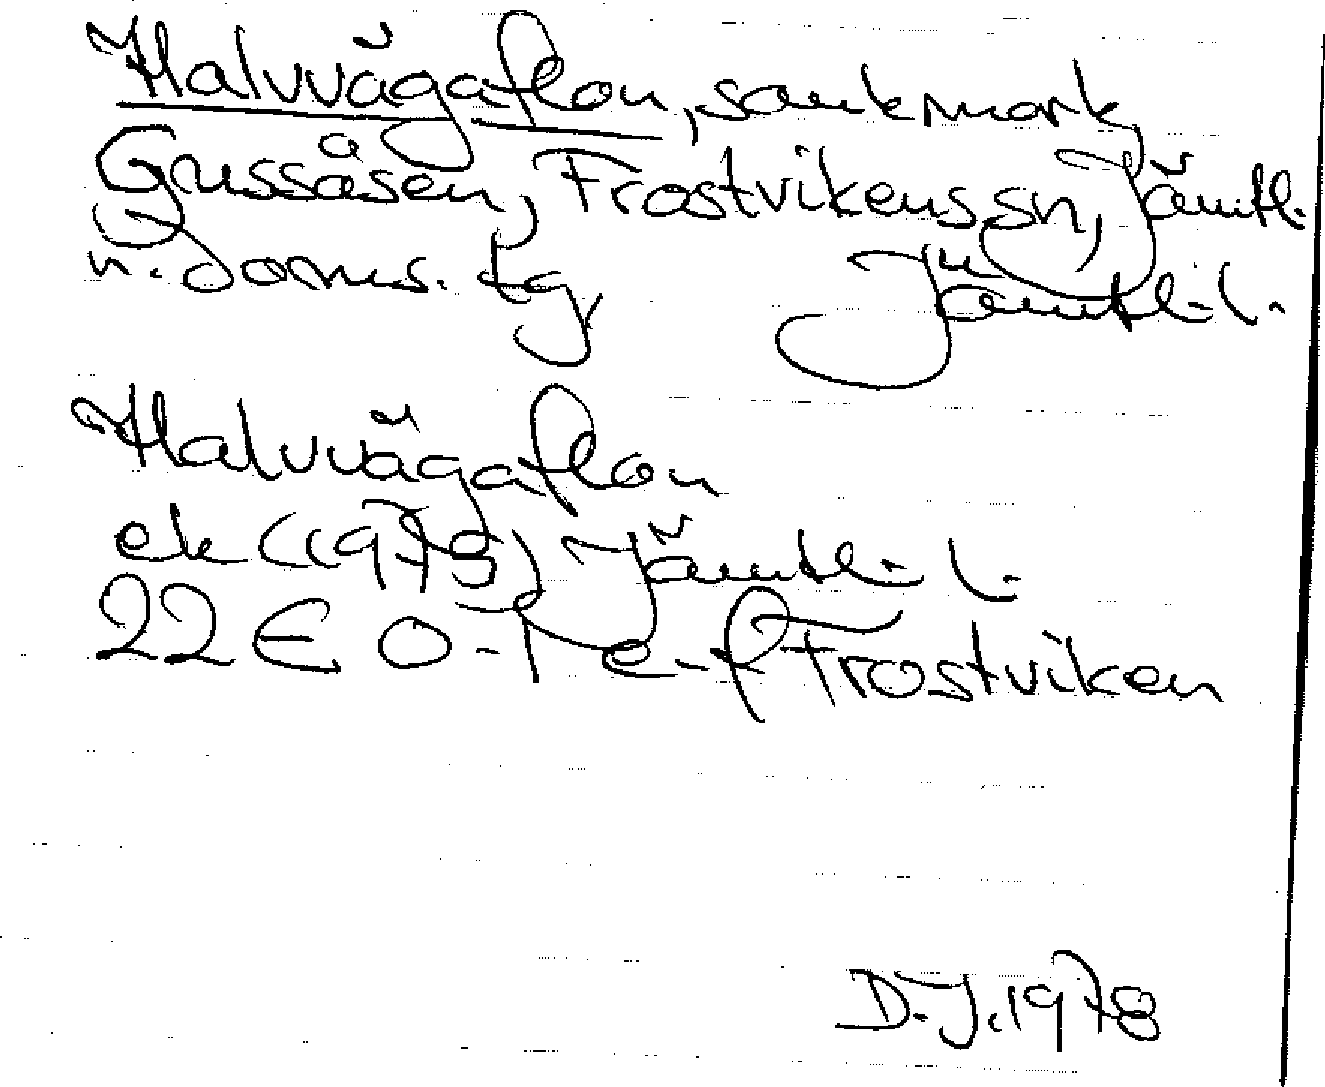 Halvvägaflon, sankmark,
Gussåsen, Frostvikens sn, Jämtl.
n. doms. tg Jämtl. l.
Halvvägaflon
ek (1978) Jämtl. l.
22E 0-1 e-f Frostviken
D.J. 1978